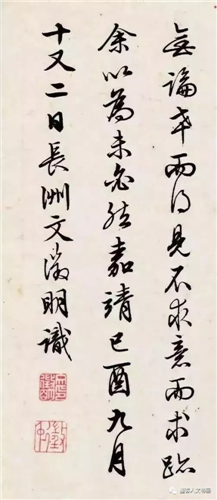 無論年而得見不求意而求跡
余以為未必然嘉靖己酉九月
十又二日長洲文徵明識